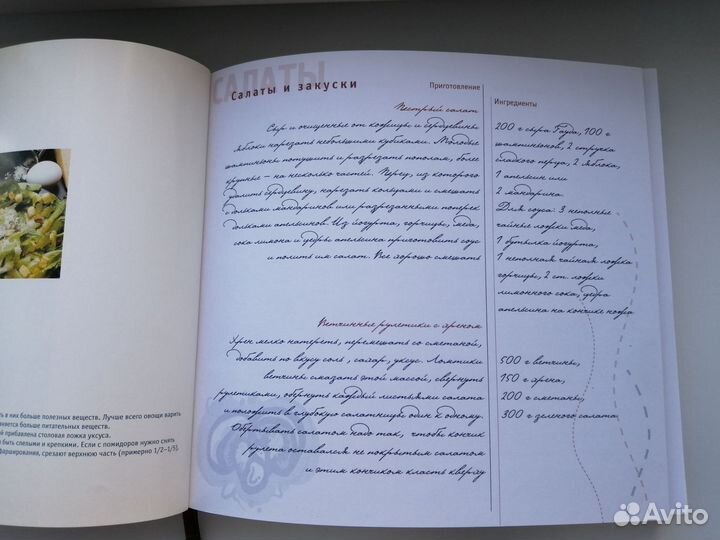 САЛАТЫ
Салаты и закуски
Приготовление
Ингредиенты
Пестрый салат
Сыр и очищенные от кожицы и сердцевины
яблоки нарезать небольшими кубиками. Молодые
шампиньоны потушить и разрезать пополам, более
крупные – на несколько частей. Перец, из которого
удалить сердцевину, нарезать кольцами и смешать
с дольками мандаринов или разрезанными поперек
дольками апельсинов. Из йогурта, горчицы, меда,
сока лимона и цедры апельсина приготовить соус
и полить им салат. Все хорошо смешать
200 г сыра Гауда, 100 г
шампиньонов, 2 стручка
сладкого перца, 2 яблока,
1 апельсин или
2 мандарина.
Для соуса: 3 неполные
чайные ложки меда,
1 бутылка йогурта,
1 неполная чайная ложка
горчицы, 2 ст. ложки
лимонного сока, цедра
апельсина на кончике ножа
Ветчинные рулетики с хреном
Хрен мелко натереть, перемешать со сметаной,
добавить по вкусу соль, сахар, уксус. Ломтики
ветчины смазать этой массой, свернуть
рулетиками, обернуть каждый листьями салата
и положить в глубокую салатницу один к одному.
Обертывать салатом надо так, чтобы кончик
рулета оставался не покрытым салатом
и этим кончиком класть кверху
500 г ветчины,
150 г хрена,
200 г сметаны,
300 г зеленого салата
ть в них больше полезных веществ. Лучше всего овощи варить
няется больше питательных веществ.
й прибавлена столовая ложка уксуса.
быть спелыми и крепкими. Если с помидоров нужно снять
фарширования, срезают верхнюю часть (примерно 1/2–1/5).
Avito